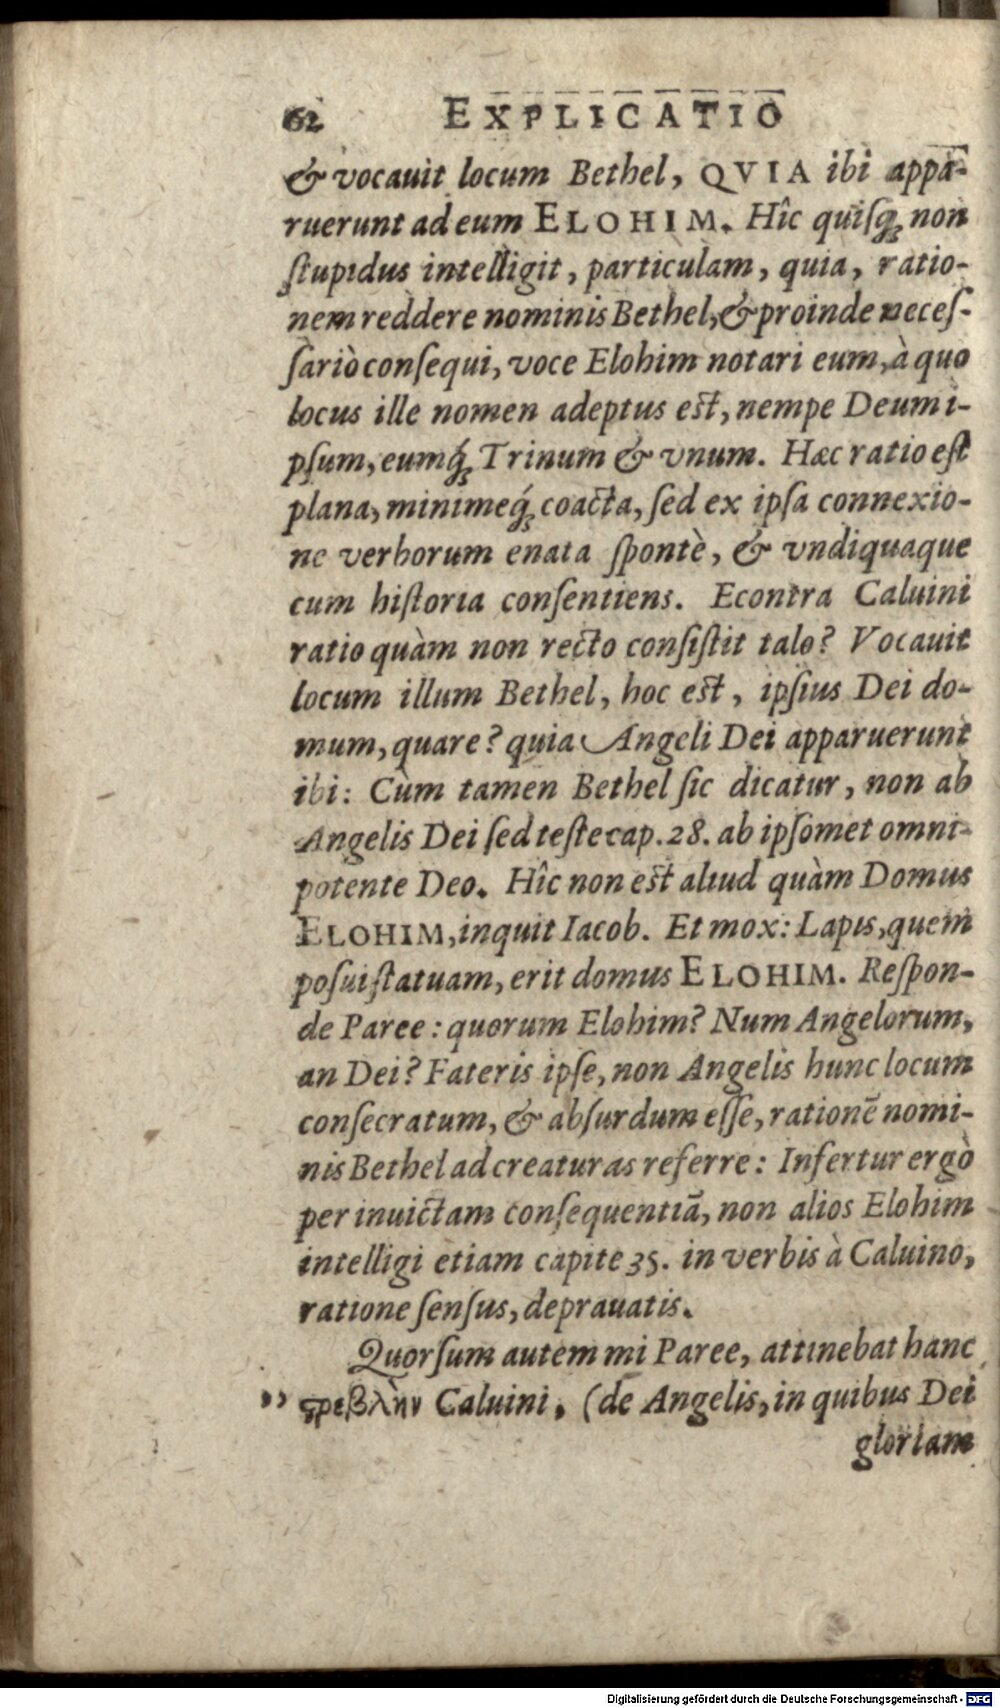 62 EXPLICATIO
& vocauit locum Bethel, QVIA ibi appa-
ruerunt ad eum ELOHIM. Hîc quiſq́; non
ſtupidus intelligit, particulam, quia, ratio-
nem reddere nominis Bethel, & proinde neceſ-
ſariò conſequi, voce Elohim notari eum, à quo
locus ille nomen adeptus est, nempe Deum i-
pſum, eumq́; Trinum & vnum. Hæc ratio eſt
plana, minimeq́; coacta, ſed ex ipſa connexio-
ne verborum enata ſpontè, & vndiquaque
cum hiſtoria conſentiens. Econtra Caluini
ratio quàm non recto conſiſtit talo? Vocauit
locum illum Bethel, hoc est, ipſius Dei do-
mum, quare? quia Angeli Dei apparuerunt
ibi: Cùm tamen Bethel ſic dicatur, non ab
Angelis Dei ſed teſte cap. 28. ab ipſomet omni-
potente Deo. Hîc non est aliud quàm Domus
ELOHIM, inquit Iacob. Et mox: Lapis, quem
poſui ſtatuam, erit domus ELOHIM. Reſpon-
de Paree: quorum Elohim? Num Angelorum,
an Dei? Fateris ipſe, non Angelis hunc locum
conſecratum, & abſurdum eſſe, rationē nomi-
nis Bethel ad creaturas referre: Infertur ergò
per inuictam conſequentiā, non alios Elohim
intelligi etiam capite 35. in verbis à Caluino,
ratione ſenſus, deprauatis.
Quorſum autem mi Paree, attinebat hanc
" ϛρεβλὴν Caluini, (de Angelis, in quibus Dei
gloriam
Digitalisierung gefördert durch die Deutsche Forschungsgemeinschaft - DFG